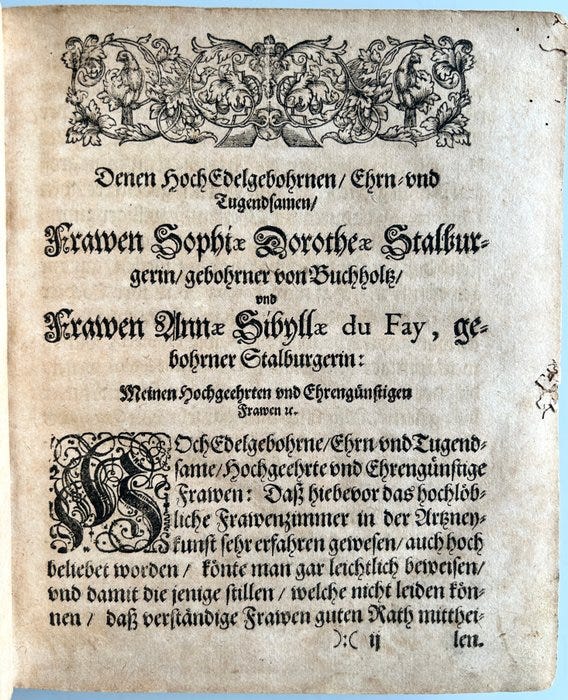 Denen HochEdelgebohrnen/ Ehrn- vnd
Tugendsamen/
Frawen Sophiæ Dorotheæ Stalbur-
gerin/ gebohrner von Buchholtz/
vnd
Frawen Annæ Sibyllæ du Fay, ge-
bohrner Stalburgerin:
Meinen Hochgeehrten vnd Ehrengünstigen
Frawen ꝛc.
HOchEdelgebohrne/ Ehrn- vnd Tugend-
same/ Hochgeehrte vnd Ehrengünstige
Frawen: Daß hiebevor das hochlöb-
liche Frawenzimmer in der Artzney-
kunst sehr erfahren gewesen/ auch hoch
beliebet worden / könte man gar leichtlich beweisen/
vnd damit die jenige stillen / welche nicht leiden kön-
nen / daß verständige Frawen guten Rath mitthei-
):( ij len.